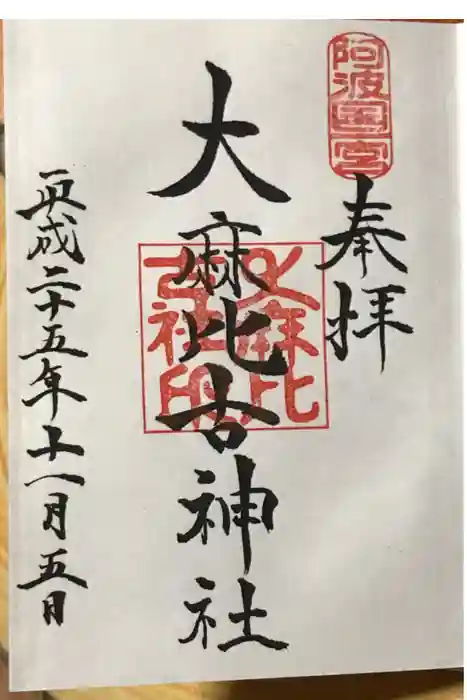 阿波国一宮
奉拝
大麻比古神社
大麻比古社印
平成二十五年十一月五日